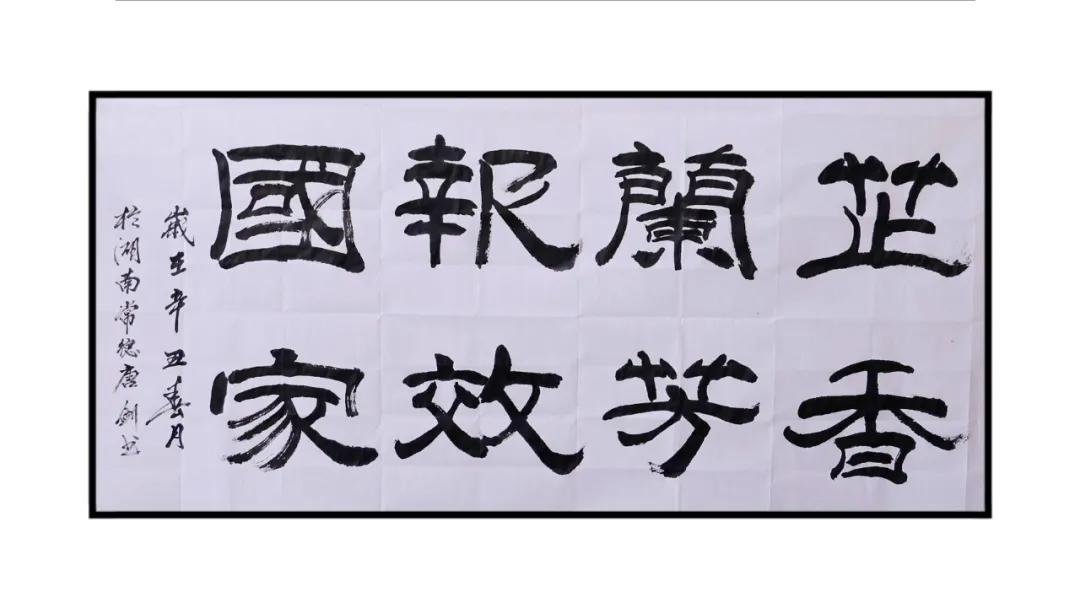 芷香
蘭芳
報效
國家
歲在辛丑春月
於湖南常德唐劍书